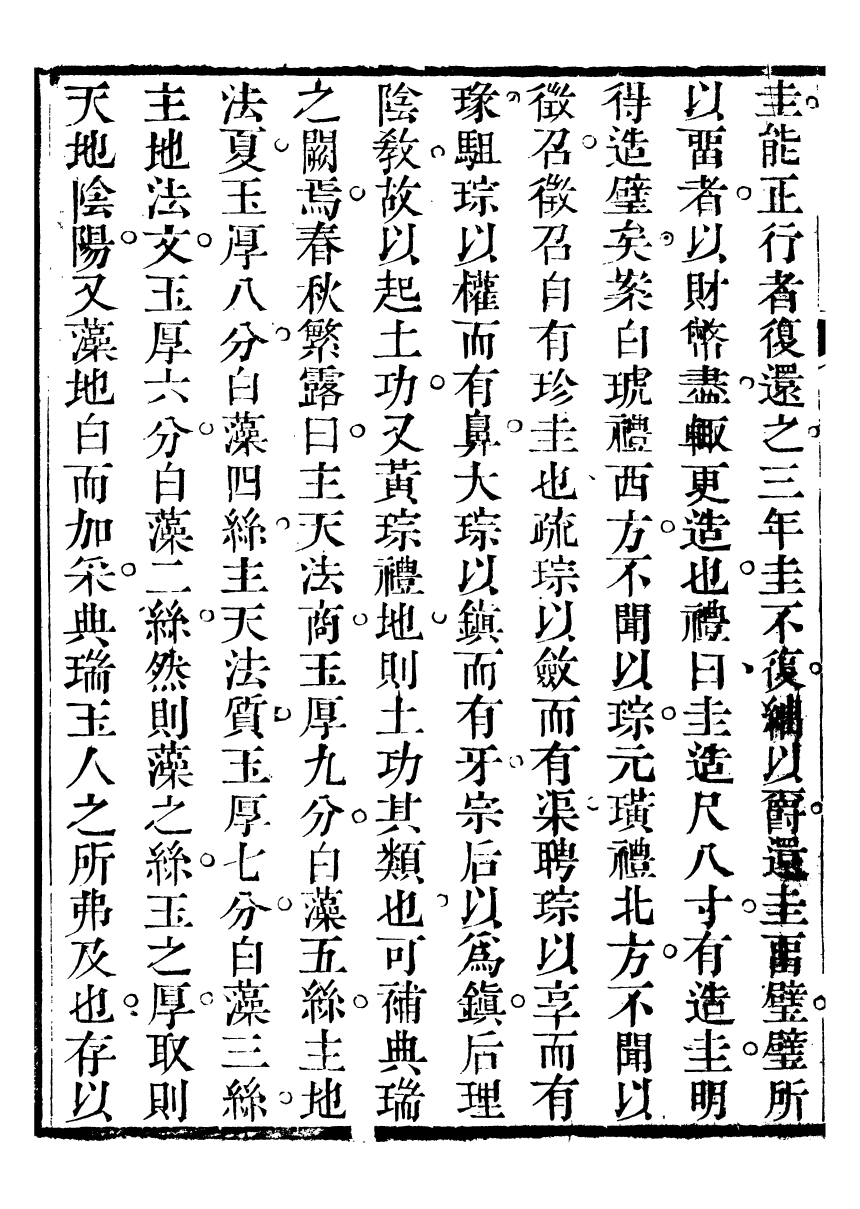 圭能正行者復還之三年圭不復紬以爵還圭畱璧璧所
以畱者以財幣盡輙更造也禮曰圭造尺八寸有造圭明
得造璧矣桉白琥禮西方不聞以琮元璜禮北方不聞以
徵召徵召自有珍圭也疏琮以斂而有渠聘琮以享而有
瑑駔琮以權而有鼻大琮以鎮而有牙宗后以爲鎮后理
陰敎故以起土功又黃琮禮地則土功其類也可補典瑞
之闕焉春秋繁露曰主天法商玉厚九分白藻五絲主地
法夏玉厚八分白藻四絲主天法質玉厚七分白藻三絲
主地法文玉厚六分白藻二絲然則藻之絲玉之厚取則
天地陰陽又藻地白而加采典瑞玉人之所弗及也存以